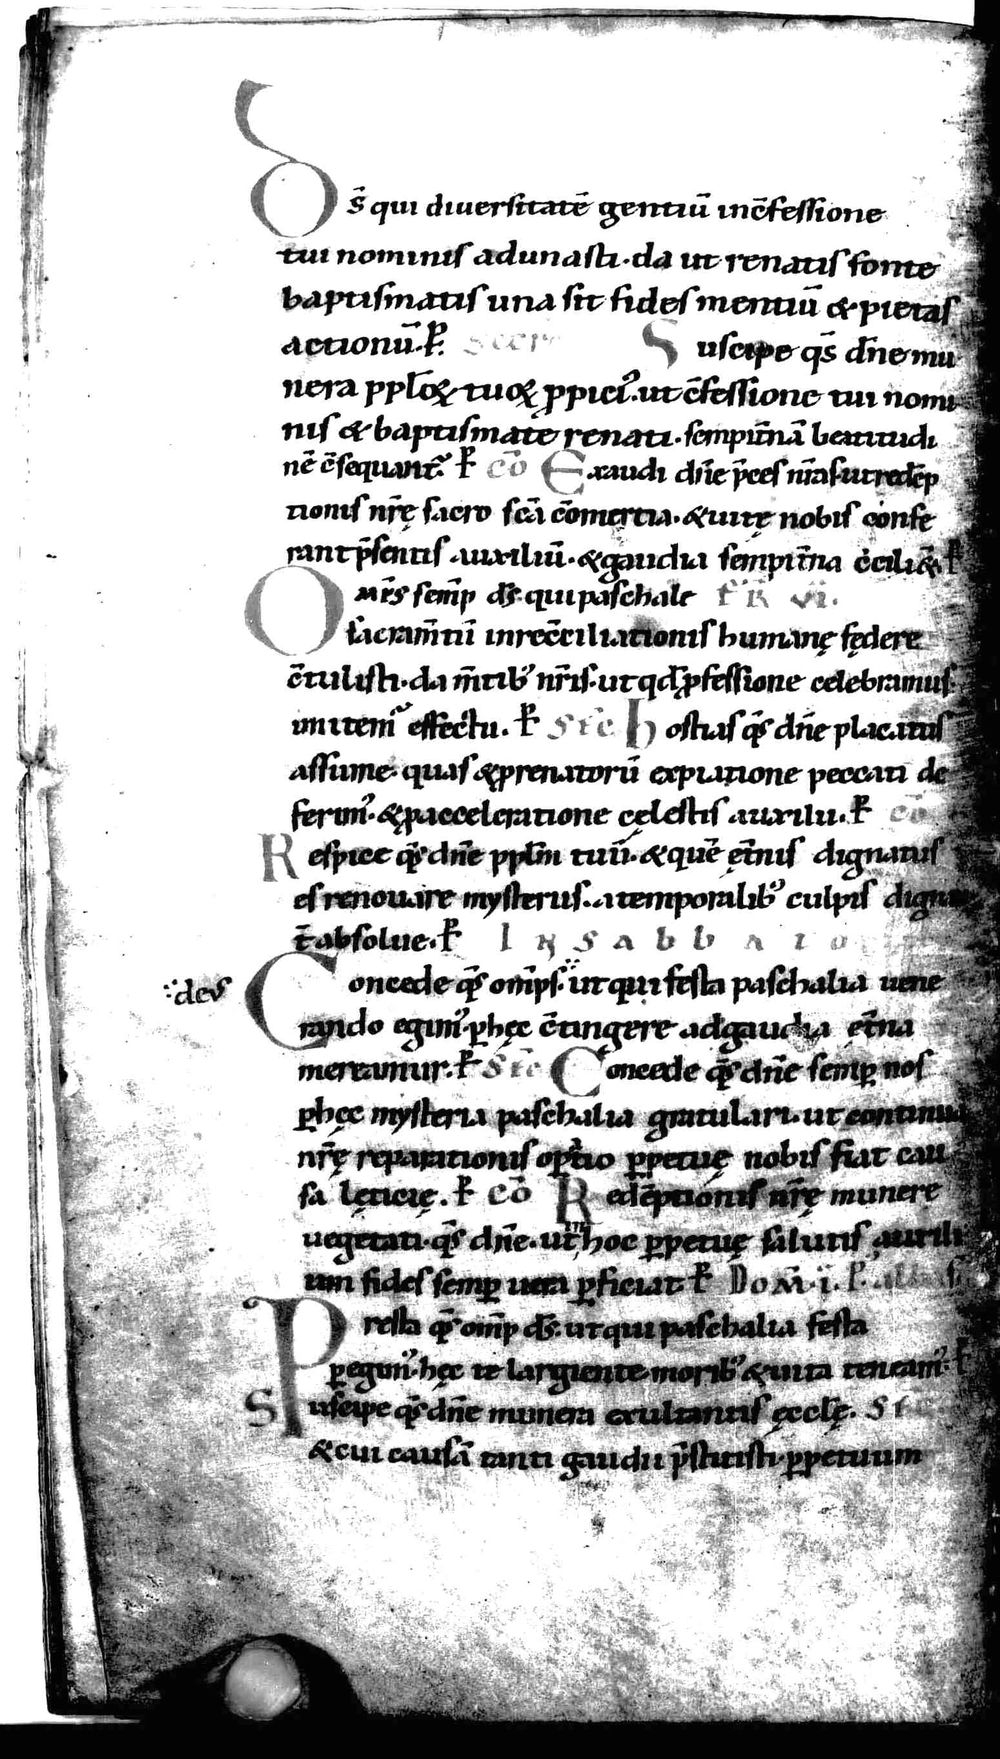 D̄s qui diuersitatē gentiū in c̄fessione
tui nominis adunasti · da ut renatis fonte
baptismatis una sit fides mentiū & pietas
actionū · P̄ Secr̄ Suscipe qs̄ dn̄e mu
nera ppl̄oꝝ tuoꝝ ꝓpici᾽ · ut c̄fessione tui nomi
nis & baptismate renati · sempit̄nā beatitudi
nē c̄sequant᾽ P̄ cō Exaudi dn̄e p̄ces nr̄as · ut redēp
tionis nr̄ę sacro scā c̄omercia · & uitę nobis confe
rant p̄sentis auxiliū · & gaudia sempit̄na c̄cili& P̄
Om̄s semp̄ ds̄ · qui paschale FR̄ VI ·
sacram̄tū in rec̄ciliationis humanę fędere
c̄tulisti · da m̄tib᾽ nr̄is · ut qd̄ ꝓfessione celebramus ·
imitem᾽ effectu · P̄ Sec̄ Hostias qs̄ dn̄e placatus
assume · quas & ꝓ renatorū expiatione peccati de
ferim᾽ · & ꝓ acceleratione cęlestis auxilii · P̄ cō
Respice qs̄ dn̄e ppl̄m tuū · & quē ęt̄nis dignatus
es renouare mysteriis · a temporalib᾽ culpis dignan
t̄ absolue · P̄ In sabbato
Concede qs̄ omp̄s · ut qui festa paschalia uene
deus
rando egim᾽ · ꝑ hęc c̄tingere ad gaudia ęt̄na
mereamur · P̄ Sec̄ Concede qs̄ dn̄e semꝑ nos
ꝑ hęc mysteria paschalia gratulari · ut continua
nr̄ę reparationis op̄atio ꝑpetuę nobis fiat cau
sa lęticię · P̄ cō Redēptionis nr̄ę munere
uegetati · qs̄ dn̄e · ut hoc ꝑpetuę salutis auxili
um fides semꝑ uera ꝑficiat P̄ Dom̄ · I · P̄ albas
Presta qs̄ om̄p ds̄ · ut qui paschalia festa
ꝑegim᾽ · hęc te largiente morib᾽ & uita teneam᾽ · P̄
Suscipe qs̄ dn̄e munera exultantis ęccl̄ę · Sec̄
& cui causā tanti gaudii p̄stitisti · ꝑpetuum